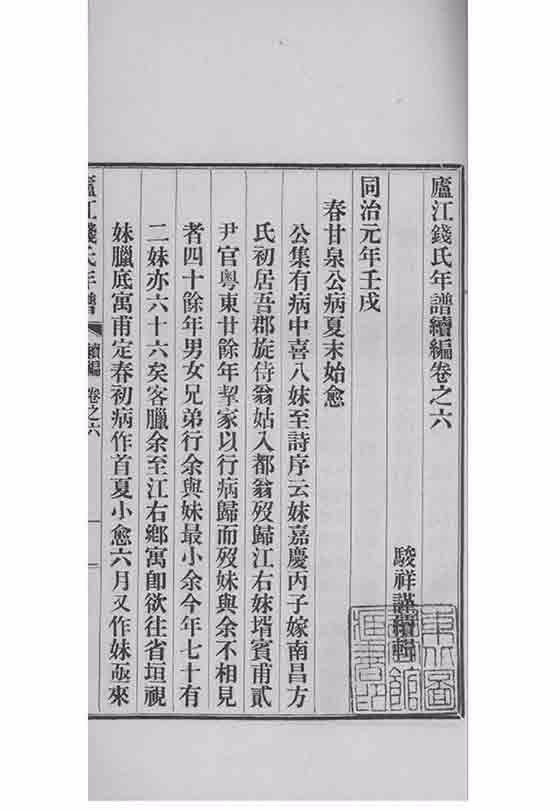 廬江錢氏年譜續編卷之六
駿祥謹續輯
同治元年壬戌
春甘泉公病夏末始愈
公集有病中喜八妹至詩序云妹嘉慶丙子嫁南昌方
氏初居吾郡旋侍翁姑入都翁歿歸江右妹壻賓甫貳
尹官粵東廿餘年挈家以行病歸而歿妹與余不相見
者四十餘年男女兄弟行余與妹最小余今年七十有
二妹亦六十六矣客臘余至江右鄉寓卽欲往省垣視
妹臘底寓甫定春初病作首夏小愈六月又作妹亟來
廬江錢氏年譜
續編 卷之六